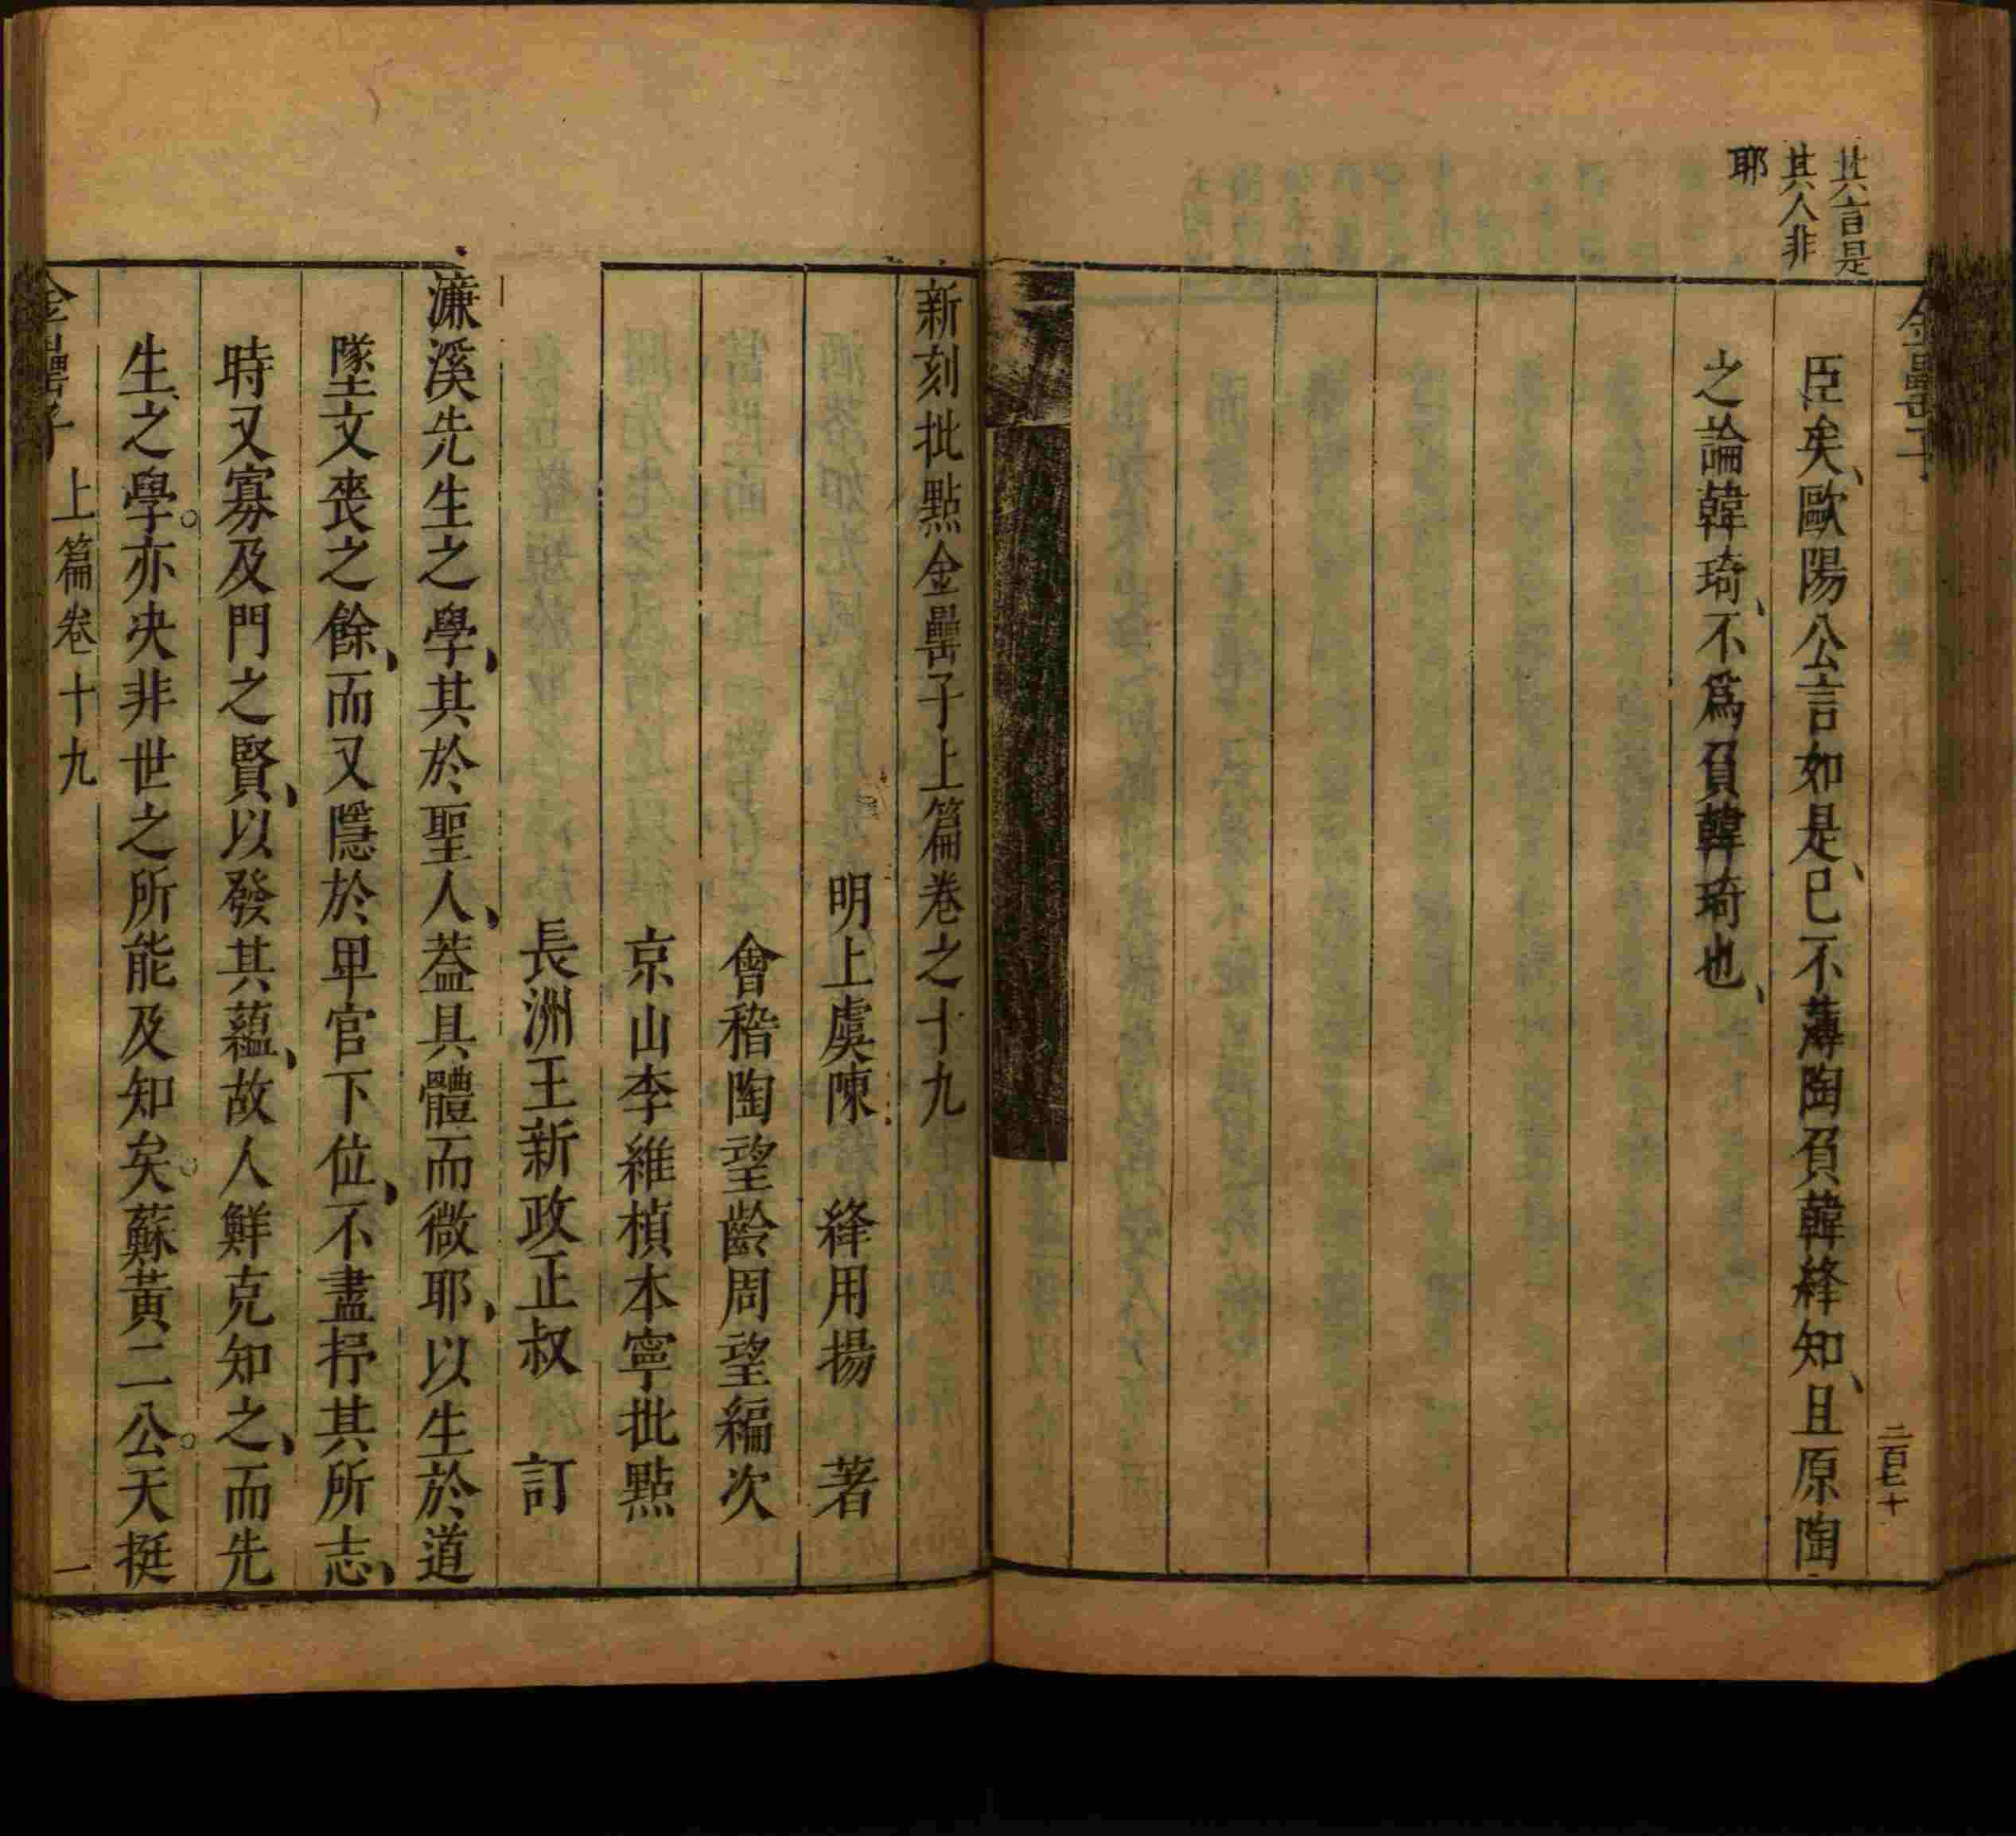 其言是
其人非
耶
金罍子
二百七十
臣矣、歐陽公言如是、已不薄陶負韓絳知、且原陶
之論韓琦、不爲負韓琦也、
新刻批點金罍子上篇卷之十九
明上虞陳　絳用揚　著
會稽陶望齡周望編次
京山李維楨本寧批點
長洲王新政正叔　訂
濂溪先生之學、其於聖人、葢具體而微耶、以生於道
墜文喪之餘、而又隱於卑官下位、不盡抒其所志、
時又寡及門之賢、以發其蘊、故人鮮克知之、而先
生之學。亦决非世之所能及知矣。蘇黃二公。天挺
金罍子　上篇卷十九　一